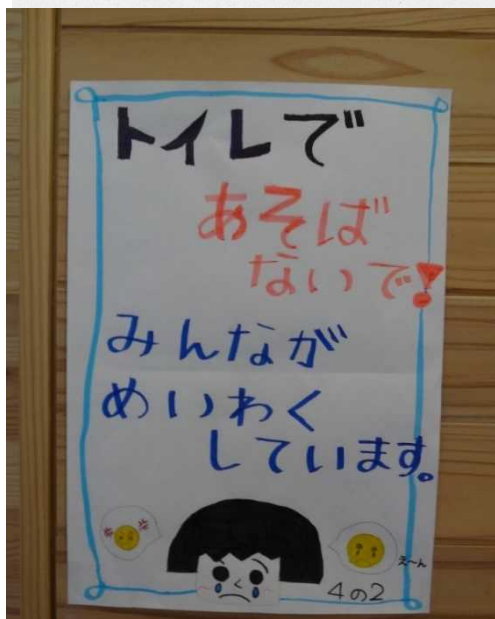 トイレで
あそば
ないで!
みんなが
めいわく
しています。
え〜ん
4の2